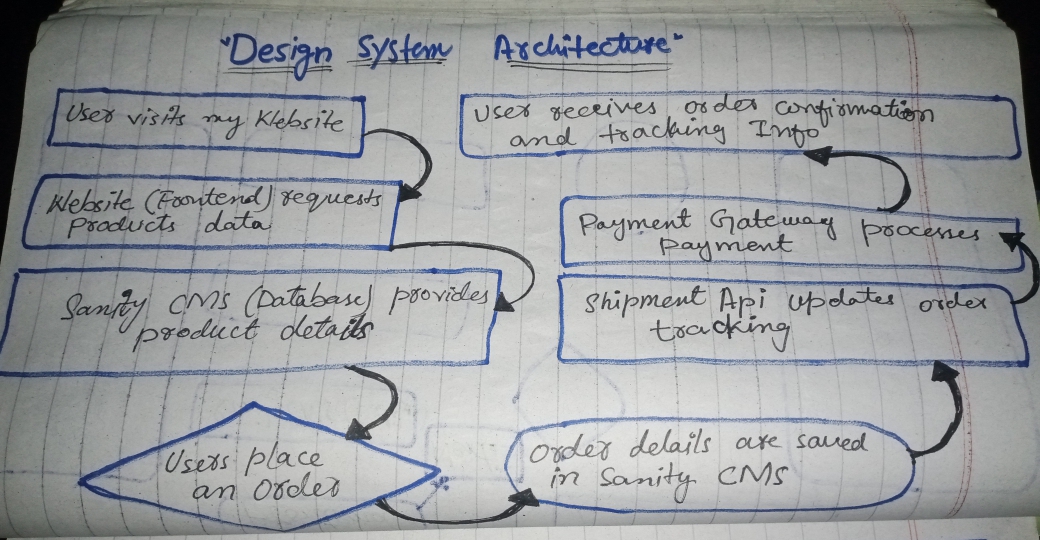 "Design System Architecture"
User visits my Website
Website (Frontend) requests
products data
Sanity CMS (Database) provides
product details
Users place
an Order
Order details are saved
in Sanity CMS
Shipment Api updates order
tracking
Payment Gateway processes
payment
User receives order confirmation
and tracking Info